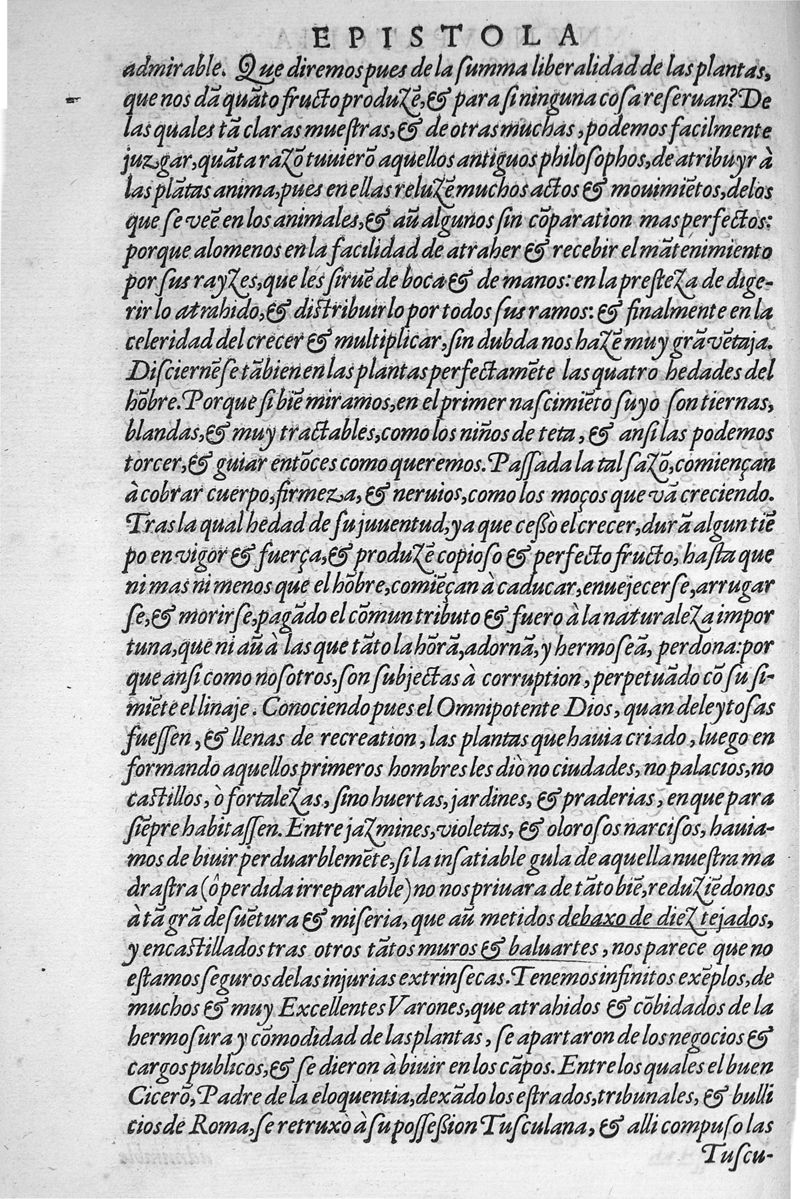 EPISTOLA
admirable. Que diremos pues de la ſumma liberalidad de las plantas,
que nos dã quãto fructo produzẽ, & para ſi ninguna coſa reſeruan? De
las quales tã claras mueſtras, & de otras muchas, podemos facilmente
juzgar, quãta razõ tuuierõ aquellos antiguos philoſophos, de atribuyr à
las plãtas anima, pues en ellas reluzẽ muchos actos & mouimiẽtos, delos
que ſe veẽ en los animales, & aũ algunos ſin cõparation mas perfectos:
porque alomenos en la facilidad de atraher & recebir el mãtenimiento
por ſus rayzes, que les ſiruẽ de boca & de manos: en la preſteza de dige-
rir lo atrahido, & diſtribuirlo por todos ſus ramos: & finalmente en la
celeridad del crecer & multiplicar, ſin dubda nos hazẽ muy grã vẽtaja.
Diſciernẽſe tãbien en las plantas perfectamẽte las quatro hedades del
hõbre. Porque ſi biẽ miramos, en el primer naſcimiẽto ſuyo ſon tiernas,
blandas, & muy tractables, como los niños de teta, & anſi las podemos
torcer, & guiar entõces como queremos. Paſſada la tal ſazõ, comiençan
à cobrar cuerpo, firmeza, & neruios, como los moços que vã creciendo.
Tras la qual hedad de ſu juuentud, ya que ceſſò el crecer, durã algun tiẽ
po en vigor & fuerça, & produzẽ copioſo & perfecto fructo, haſta que
ni mas ni menos que el hõbre, comiẽçan à caducar, enuejecerſe, arrugar
ſe, & morirſe, pagãdo el cõmun tributo & fuero à la naturaleza impor
tuna, que ni aũ à las que tãto la hõrã, adornã, y hermoſeã, perdona: por
que anſi como noſotros, ſon ſubjectas à corruption, perpetuãdo cõ ſu ſi-
miẽte el linaje. Conociendo pues el Omnipotente Dios, quan deleytoſas
fueſſen, & llenas de recreation, las plantas que hauia criado, luego en
formando aquellos primeros hombres les diò no ciudades, no palacios, no
caſtillos, ò fortalezas, ſino huertas, jardines, & praderias, en que para
ſiẽpre habitaſſen. Entre jazmines, violetas, & oloroſos narciſos, hauia-
mos de biuir perduarblemẽte, ſi la inſatiable gula de aquella nueſtra ma
draſtra (ô perdida irreparable) no nos priuara de tãto biẽ, reduziẽdonos
à tã grã deſuẽtura & miſeria, que aũ metidos debaxo de diez tejados,
y encaſtillados tras otros tãtos muros & baluartes, nos parece que no
eſtamos ſeguros de las injurias extrinſecas. Tenemos infinitos exẽplos, de
muchos & muy Excellentes Varones, que atrahidos & cõbidados de la
hermoſura y cõmodidad de las plantas, ſe apartaron de los negocios &
cargos publicos, & ſe dieron à biuir en los cãpos. Entre los quales el buen
Cicerõ, Padre de la eloquentia, dexãdo los eſtrados, tribunales, & bulli
cios de Roma, ſe retruxò à ſu poſſeſsion Tuſculana, & alli compuſo las
Tuſcu-